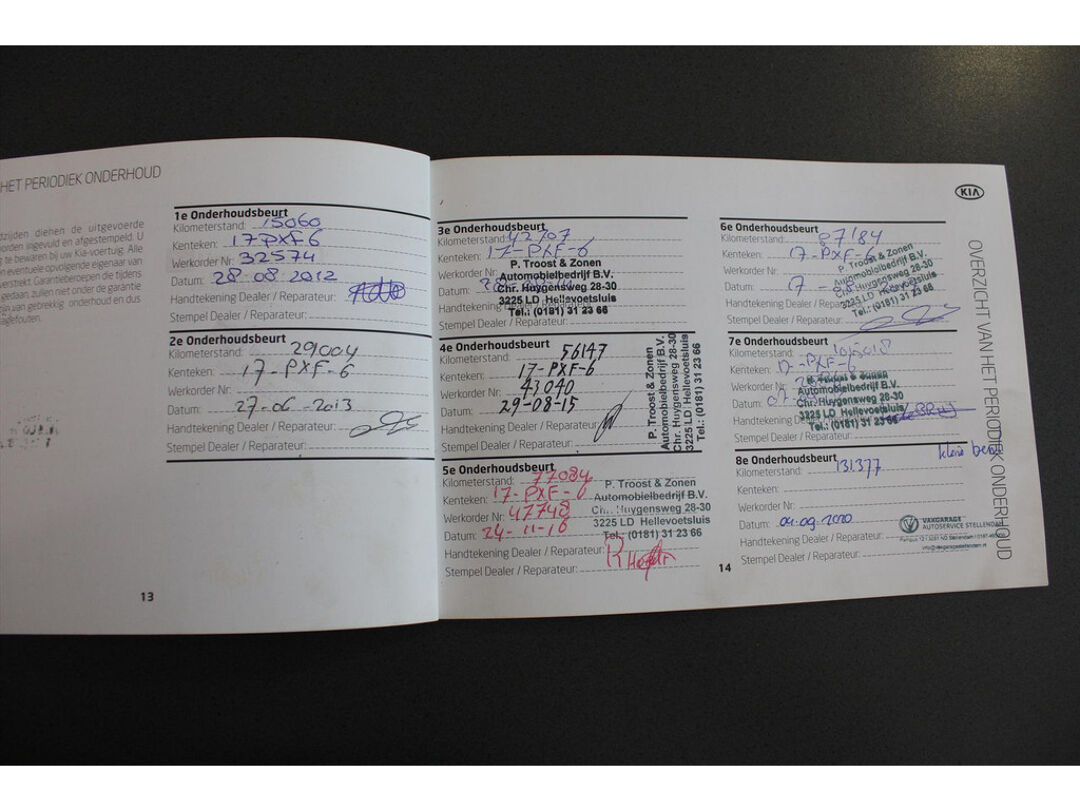 HET PERIODIEK ONDERHOUD
dzijden dienen de uitgevoerde
orden ingevuld en afgestempeld. U
g te bewaren bij uw Kia-voertuig. Alle
n eventuele opvolgende eigenaar van
verstrekt. Garantieberoepen die tijdens
gedaan, zullen niet onder de garantie
zijn van gebrekkig onderhoud en dus
1e Onderhoudsbeurt
Kilometerstand: 15060
Kenteken: 17PXF6
Werkorder Nr: 32574
Datum: 28-08-2012
Handtekening Dealer / Reparateur:
Stempel Dealer / Reparateur:
2e Onderhoudsbeurt
Kilometerstand: 29004
Kenteken: 17-PXF-6
Werkorder Nr:
Datum: 27-06-2013
Handtekening Dealer / Reparateur:
Stempel Dealer / Reparateur:
13
3e Onderhoudsbeurt
Kilometerstand: 42707
Kenteken: 17-PXF-6
Werkorder Nr:
Datum:
Handtekening
Stempel Dealer / Reparateur:
P. Troost & Zonen
Automobielbedrijf B.V.
Chr. Huygensweg 28-30
3225 LD Hellevoetsluis
Tel.: (0181) 31 23 66
4e Onderhoudsbeurt
Kilometerstand: 56147
Kenteken: 17-PXF-6
Werkorder Nr: 43040
Datum: 29-08-15
Handtekening Dealer / Reparateur:
Stempel Dealer / Reparateur:
P. Troost & Zonen
Automobielbedrijf B.V.
Chr. Huygensweg 28-30
3225 LD Hellevoetsluis
Tel.: (0181) 31 23 66
5e Onderhoudsbeurt
Kilometerstand: 77084
Kenteken: 17-PXF-6
Werkorder Nr: 47748
Datum: 24-11-16
Handtekening Dealer / Reparateur:
Stempel Dealer / Reparateur:
P. Troost & Zonen
Automobielbedrijf B.V.
Chr. Huygensweg 28-30
3225 LD Hellevoetsluis
Tel.: (0181) 31 23 66
14
KIA
6e Onderhoudsbeurt
Kilometerstand: 87184
Kenteken: 17-PXF-6
Werkorder Nr:
Datum:
Handtekening
Stempel Dealer / Reparateur:
P. Troost & Zonen
Automobielbedrijf B.V.
Chr. Huygensweg 28-30
3225 LD Hellevoetsluis
Tel.: (0181) 31 23 66
7e Onderhoudsbeurt
Kilometerstand:
Kenteken: 17-PXF-6
Werkorder Nr:
Datum:
Handtekening
Stempel Dealer / Reparateur:
Automobielbedrijf B.V.
Chr. Huygensweg 28-30
3225 LD Hellevoetsluis
Tel.: (0181) 31 23 66
8e Onderhoudsbeurt
Kilometerstand: 131.377
Kenteken:
Werkorder Nr:
Datum: 04-09-2020
Handtekening Dealer / Reparateur:
Stempel Dealer / Reparateur:
VAKGARAGE
AUTOSERVICE STELLENDAM
OVERZICHT VAN HET PERIODIEK ONDERHOUD